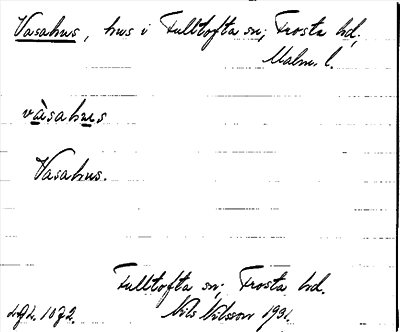 Vasahus, hus i Fulltofta sn, Frosta hd,
Malm. l.
vàsahus
Vasahus.
Fulltofta sn, Frosta hd.
Nils Nilsson 1931.